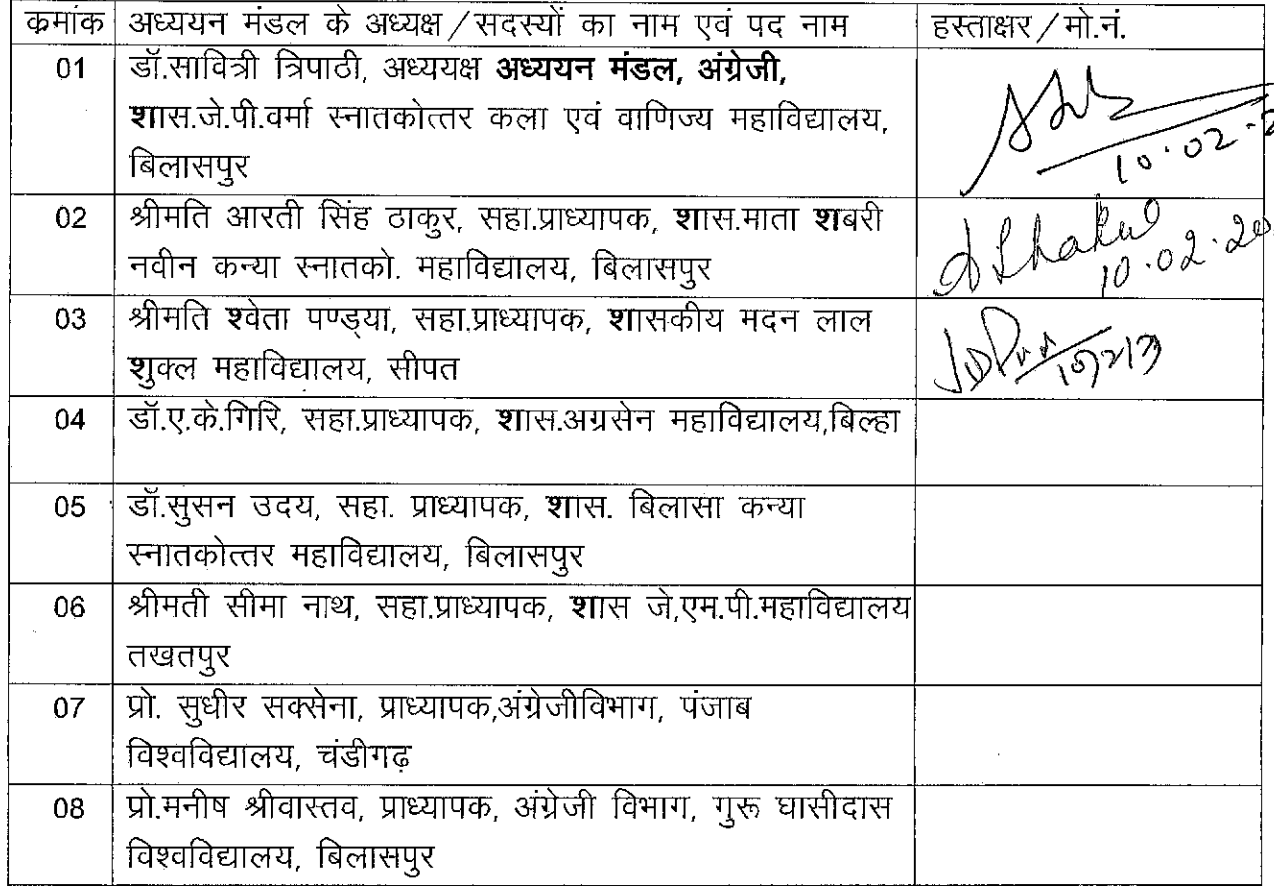 क्रमांक अध्ययन मंडल के अध्यक्ष/सदस्यों का नाम एवं पद नाम हस्ताक्षर/मो.नं.
01 डॉ.सावित्री त्रिपाठी, अध्ययक्ष अध्ययन मंडल, अंग्रेजी,
शास.जे.पी.वर्मा स्नातकोत्तर कला एवं वाणिज्य महाविद्यालय,
बिलासपुर
10.02.2
02 श्रीमति आरती सिंह ठाकुर, सहा.प्राध्यापक, शास.माता शबरी
नवीन कन्या स्नातको. महाविद्यालय, बिलासपुर
10.02.20
03 श्रीमति श्वेता पण्ड्या, सहा.प्राध्यापक, शासकीय मदन लाल
शुक्ल महाविद्यालय, सीपत
04 डॉ.ए.के.गिरि, सहा.प्राध्यापक, शास.अग्रसेन महाविद्यालय,बिल्हा
05 डॉ.सुसन उदय, सहा. प्राध्यापक, शास. बिलासा कन्या
स्नातकोत्तर महाविद्यालय, बिलासपुर
06 श्रीमती सीमा नाथ, सहा.प्राध्यापक, शास जे,एम.पी.महाविद्यालय
तखतपुर
07 प्रो. सुधीर सक्सेना, प्राध्यापक,अंग्रेजीविभाग, पंजाब
विश्वविद्यालय, चंडीगढ़
08 प्रो.मनीष श्रीवास्तव, प्राध्यापक, अंग्रेजी विभाग, गुरू घासीदास
विश्वविद्यालय, बिलासपुर